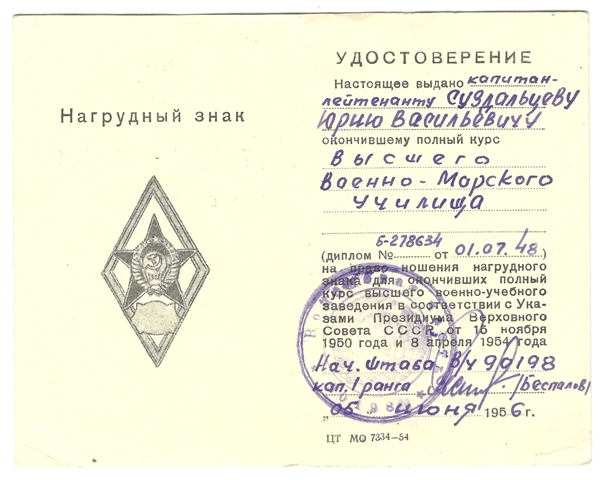 Нагрудный знак
УДОСТОВЕРЕНИЕ
Настоящее выдано капитан-
лейтенанту Суздальцеву
Юрию Васильевичу
окончившему полный курс
Высшего
Военно-Морского
Училища
Б-278634
(диплом № от 01.07.48)
на право ношения нагрудного
знака для окончивших полный
курс высшего военно-учебного
заведения в соответствии с Ука-
зами Президиума Верховного
Совета СССР от 15 ноября
1950 года и 8 апреля 1954 года
Нач. штаба В/ч 90198
кап. 1 ранга (Беспалов)
„05 „ июня 1956 г.
ЦТ МО 7334—54